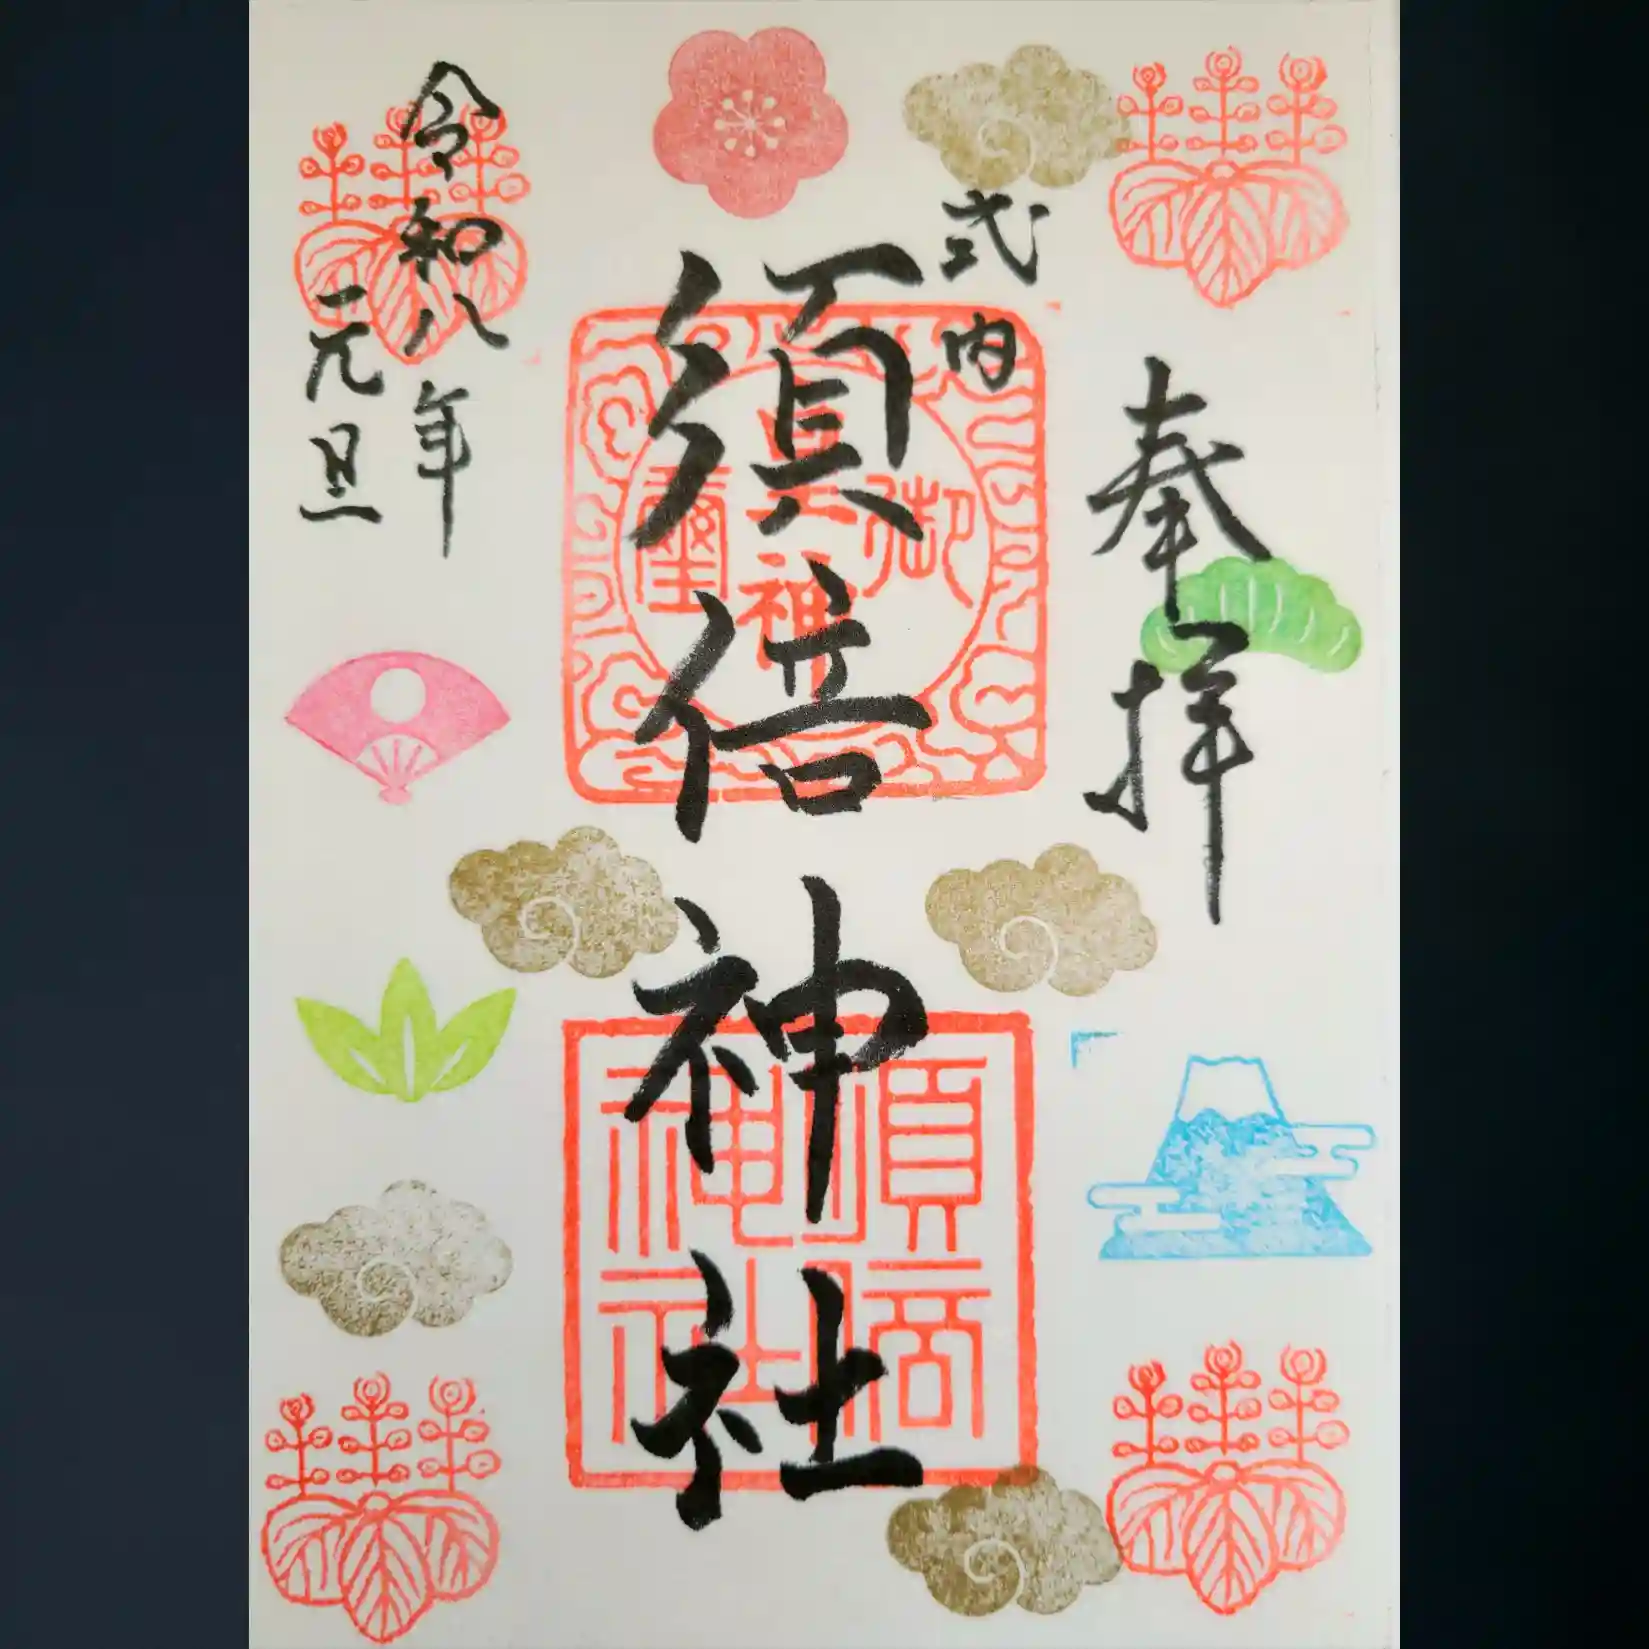 奉拝
式内
須倍神社
令和八年
元旦
御
神
璽
須倍
神社